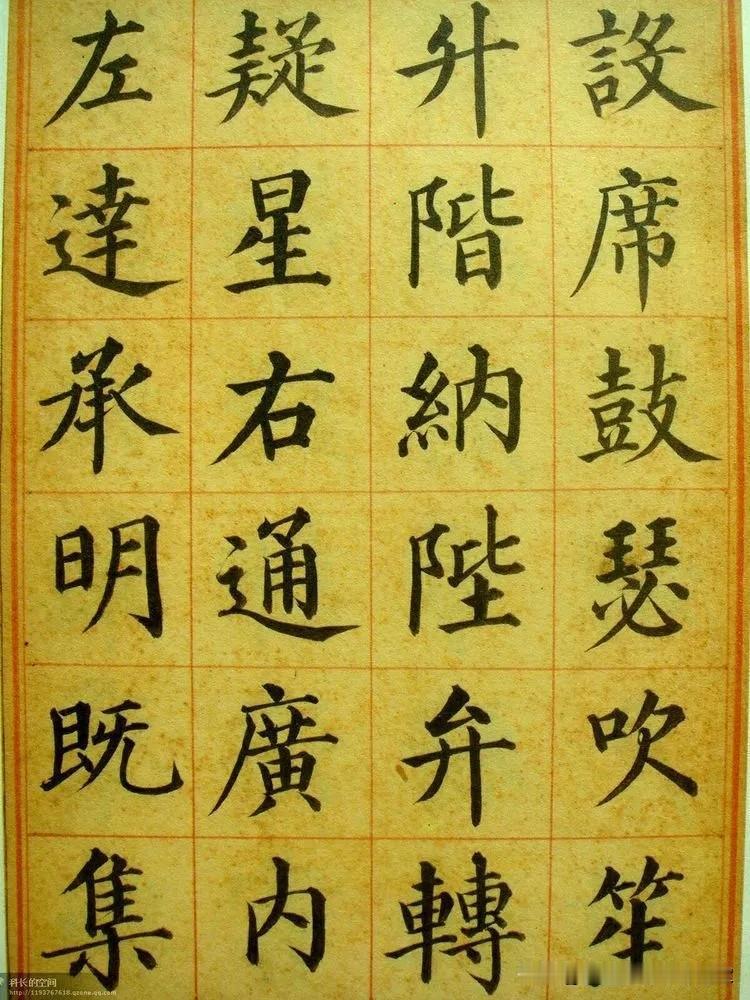 設席鼓瑟吹笙
升階納陛弁轉
疑星右通廣內
左達承明既集
科长的空间
http://1193767618.qzone.qq.com